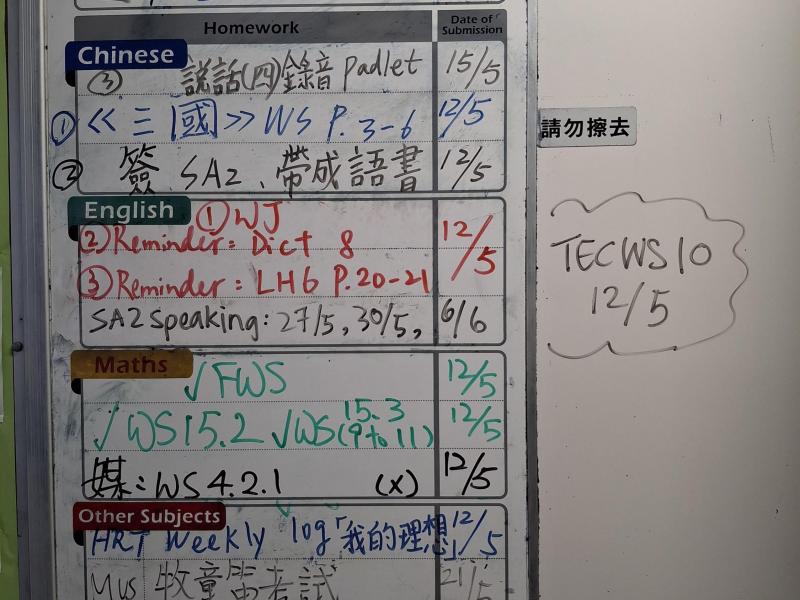 Homework Date of Submission
Chinese
③ 説話(四)錄音 padlet 15/5
① 《三國》 WS P. 3-6 12/5
② 簽 SA2、帶成語書 12/5
請勿擦去
English
① WJ
② Reminder: Dict 8 12/5
③ Reminder: LH6 P.20-21
SA2 Speaking: 27/5, 30/5, 6/6
TECWS10
12/5
Maths
√ FWS 12/5
√ WS15.2 √ WS 15.3 (9 to 11) 12/5
媒: WS 4.2.1 (x) 12/5
Other Subjects
HRT Weekly log「我的理想」 12/5
Mus 牧童笛考試 21/5